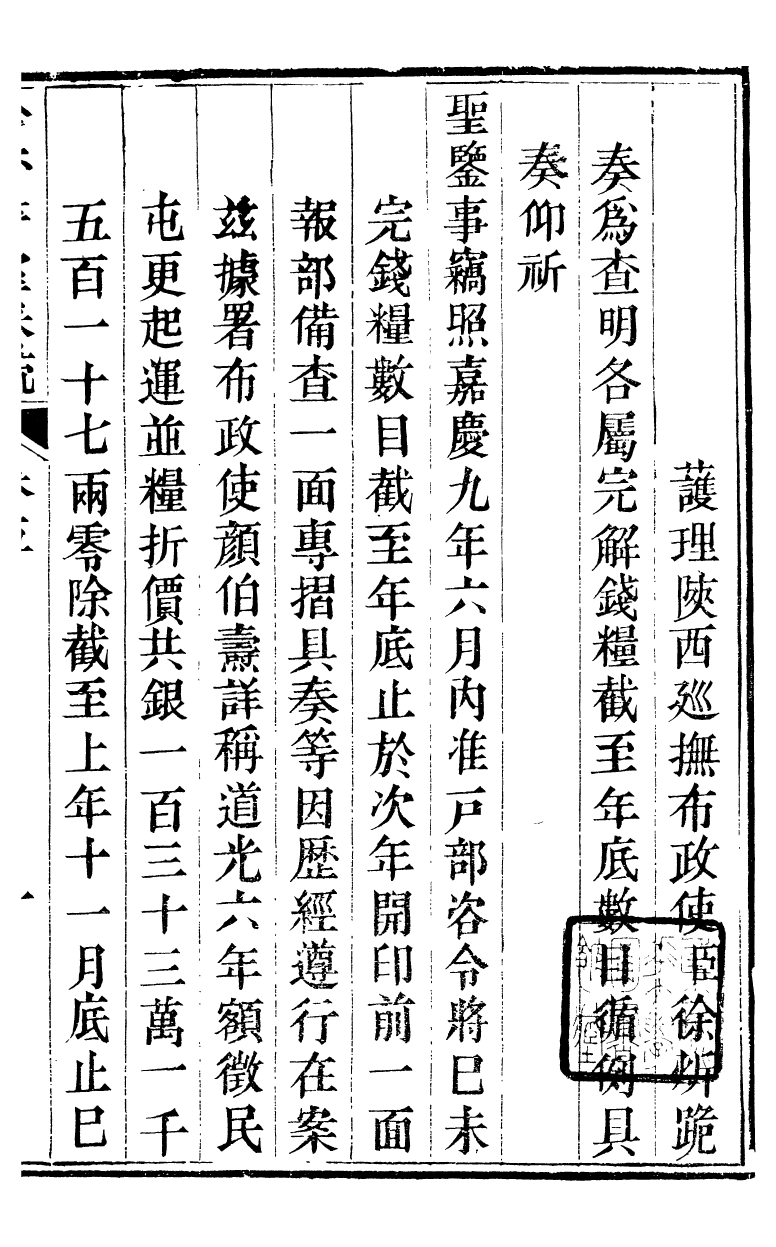 護理陝西巡撫布政使臣徐炘跪
奏爲查明各屬完解錢糧截至年底數目循例具
奏仰祈
聖鑒事竊照嘉慶九年六月內准戸部咨令將已未
完錢糧數目截至年底止於次年開印前一面
報部備查一面專摺具奏等因歷經遵行在案
茲據署布政使顏伯燾詳稱道光六年額徵民
屯更起運並糧折價共銀一百三十三萬一千
五百一十七兩零除截至上年十一月底止巳